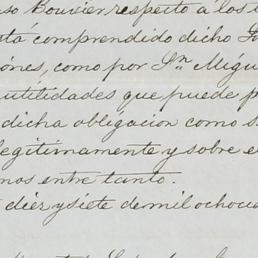 so Bouvier, respecto a los
stá comprendido dicho
ones, como por Sn. Migu
utilidades que puede p
dicha obligacion como s
legitimamente y sobre e
nos entre tanto.
diez y siete de mil ochoci